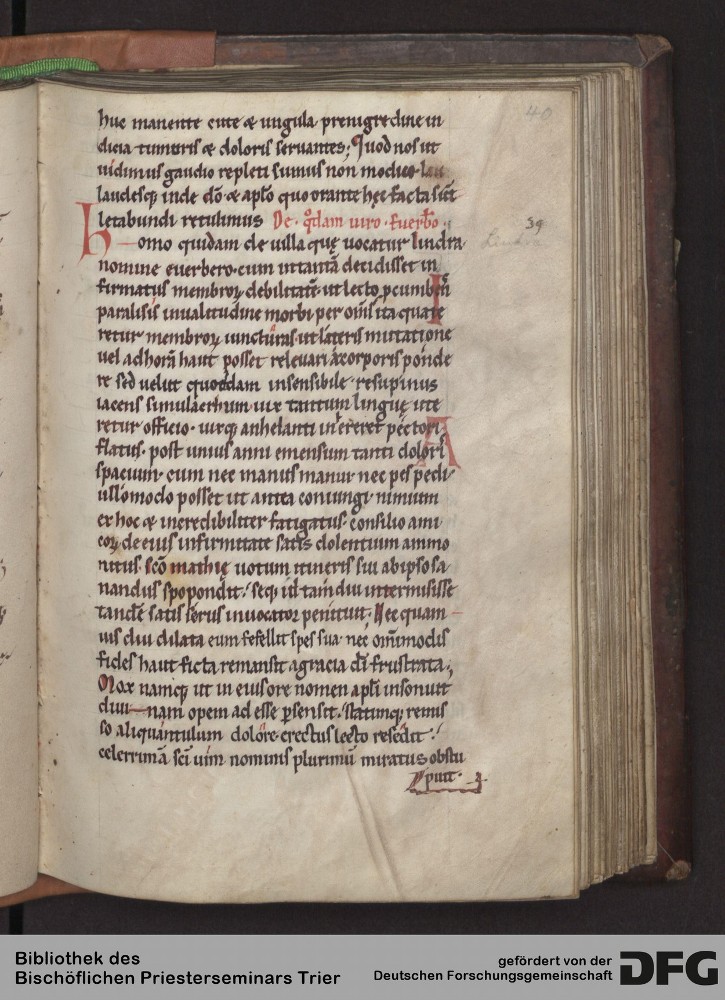 40
huc manente cute & ungula prenigredine in
dicia tumoris & doloris servantes; Quod nos ut
uidimus gaudio repleti sumus non modicas
laudesq; inde dõ & aplo quo orante hęc facta sũt
letabundi retulimus De quodam uiro euerbo.
39
Homo quidam de uilla quę uocatur lindra
nomine euerbero. cum in tantã decidisset in
firmatus membroꝝ debilitatẽ. ut lecto ꝓcumbens
paralisis inualitudine morbi per om̃s ita quate
retur membroꝝ iuncturas. ut lateris mutatione
uel ad horã haut posset releuari a corporis ponde
re sed uelut quoddam insensibile. resupinus
iacens simulachrum uix tantum linguę ute
retur officio. uixq; anhelanti inhereret pectori
flatus. post unius anni emensum tanti doloris
spacium. cum nec manus manui nec pes pedi.
ullomodo posset ut antea coniungi. nimium
ex hoc & incredibiliter fatigatus. consilio ami
coꝝ de eius infirmitate satis dolentium ammo
nitus. scõ mathie uotum itineris sui ab ipso sa
nandus spopondit. seq; id tam diu intermisisse
tandẽ satis serus inuocator penituit. Nec quam
uis diu dilata eum fefellit spes sua. nec om̃imodis
fides haut ficta remansit a gracia dĩ frustrata;
Mox namq; ut in eius ore nomen apli insonuit
diui nam opem adesse ꝑsensit. statimq; remis
so aliquantulum dolore. erectus lecto resedit.
celerrimã sci uim nominis plurimũ miratus obstu
puit.
Bibliothek des
Bischöflichen Priesterseminars Trier
gefördert von der
Deutschen Forschungsgemeinschaft
DFG